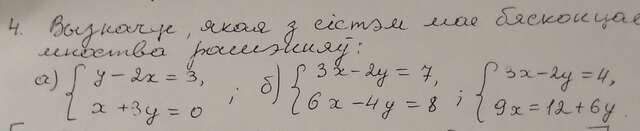 4. Вызначце, якая з сістэм мае бясконцае
мноства рашэнняў:
а) { y - 2x = 3, ; б) { 3x - 2y = 7, ; { 3x - 2y = 4,
x + 3y = 0 6x - 4y = 8 9x = 12 + 6y.